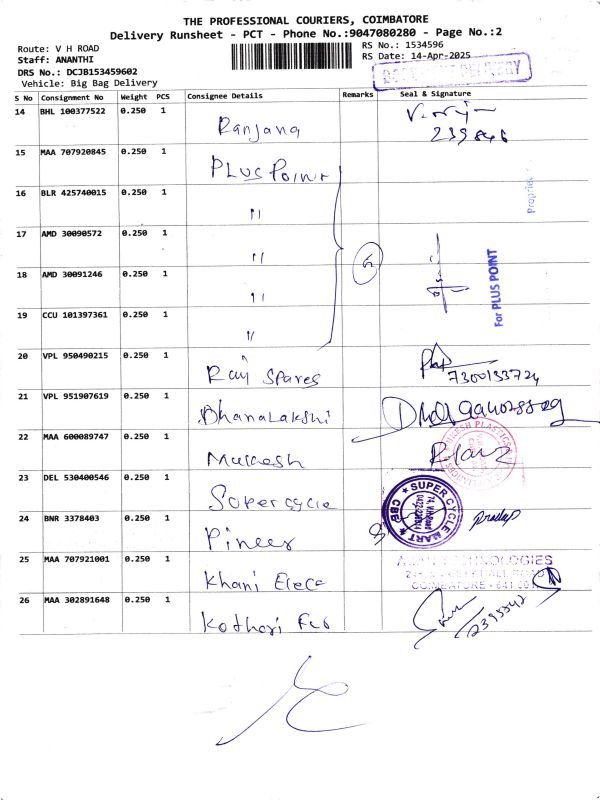 THE PROFESSIONAL COURIERS, COIMBATORE
Delivery Runsheet - PCT - Phone No.:9047080280 - Page No.:2
Route: V H ROAD
RS No.: 1534596
Staff: ANANTHI
RS Date: 14-Apr-2025
DRS No.: DCJB153459602
Vehicle: Big Bag Delivery
DELIVERY
S No Consignment No Weight PCS Consignee Details Remarks Seal & Signature
14 BHL 100377522 0.250 1 Ranjana
239846
15 MAA 707920845 0.250 1 PLUS Point
16 BLR 425740015 0.250 1 "
17 AMD 30090572 0.250 1 "
18 AMD 30091246 0.250 1 "
For PLUS POINT
19 CCU 101397361 0.250 1 "
20 VPL 950490215 0.250 1 Raj Spares
7300133724
21 VPL 951907619 0.250 1 Dhanalakshi
22 MAA 600089747 0.250 1 Mukesh
23 DEL 530400546 0.250 1 Supercycle
SUPER CYCLE MART
CBE
24 BNR 3378403 0.250 1 Pineer
Pradeep
25 MAA 707921001 0.250 1 Khani Elece
TECHNOLOGIES
COIMBATORE - 641 001
26 MAA 302891648 0.250 1 Kothari Fur
2395542